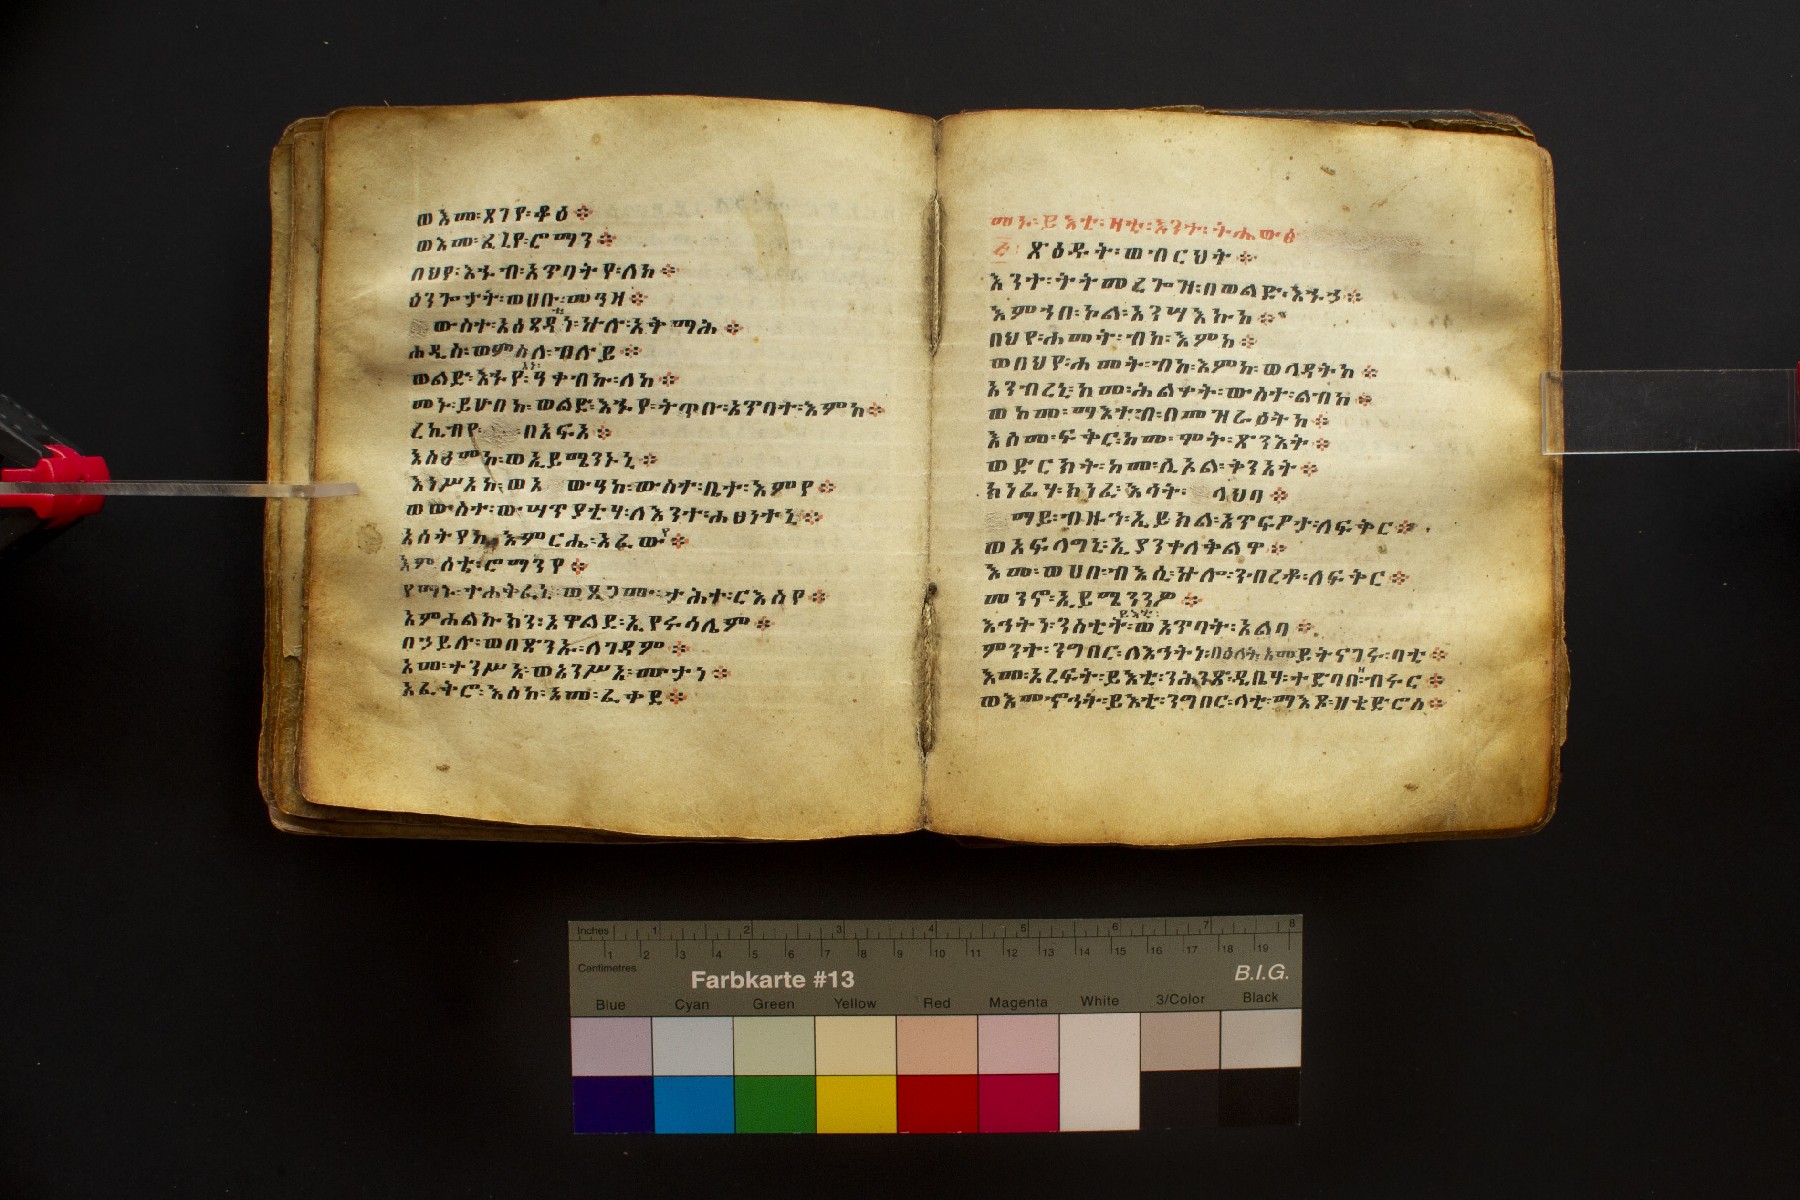 ወእመ፡ጸገየ፡ቆዕ፨
ወእመ፡ፈረየ፡ሮማን፨
በህየ፡እሁብ፡አጥባትየ፡ለከ፨
ዕንጐታት፡ወሀቡ፡መዓዛ፨
ውስተ፡አፅዳዲነ፡ኵሉ፡አትማሕ፨
ሐዲስ፡ወምስለ፡ብሉይ፨
ወልድ፡እኁየ፡ዓቀብኩ፡ለከ፨
መኑ፡ይሁበከ፡ወልድ፡እኁየ፡ትጥቡ፡አጥባተ፡እምከ፨
ረኪብየ፡በአፍአ፨
እስዕምከ፡ወኢይሜንኑኒ፨
እነሥአከ፡ወአ ውዓከ፡ውስተ፡ቤተ፡እምየ፨
ወውስተ፡ውሣጥያቲሃ፡ለእንተ፡ሐፀነተኒ፨
አሰትየከ፡እምርሔ፡አፈው፨
እምሰቲ፡ሮማንየ፨
የማኑ፡ተሐቅፈኒ፡ወፀጋሙ፡ታሕተ፡ርእስየ፨
አምሐልኩክን፡አዋልደ፡ኢየሩሳሌም፨
በኃይሉ፡ወበጽንኡ፡ለገዳም፨
እመ፡ተንሥአ፡ወአንሥአ፡ሙታነ፨
አፈትሮ፡እስከ፡አመ፡ፈቀደ፨
መኑ፡ይእቲ፡ዛቲ፡እንተ፡ትሐውፅ
ጽዕዱት፡ወብርህት፨
እንተ፡ትትመረጐዝ፡በወልድ፡እኁኃ፨
እምኀበ፡ኮል፡አንሣእኩከ፨
በህየ፡ሐመት፡ብከ፡እምከ፨
ወበህየ፡ሐመት፡ብከ፡እምከ፡ወላዲትከ፨
አንብረኒ፡ከመ፡ሕልቀት፡ውስተ፡ልብከ፨
ወከመ፡ማእተብ፡በመዝራዕትከ፨
እስመ፡ፍቅር፡ከመ፡ሞት፡ጽንእት፨
ወድርክት፡ከመ፡ሲኦል፡ቅንአት፨
ክነፊሃ፡ክነፈ፡እሳት፡ላህባ፨
ማይ፡ብዙኅ፡ኢይክል፡አጥፍኦታ፡ለፍቅር፨
ወአፍላግኒ፡ኢያንቀለቅልዋ፨
እመ፡ወሀበ፡ብእሲ፡ኵሎ፡ንብረቶ፡ለፍቅር፨
መንኖ፡ኢይሜንንዎ፨
እኅትነ፡ንስቲት፡ይእቲ፡ወአጥባት፡አልባ፨
ምንተ፡ንግበር፡ለእኅትነ፡በዕለተ፡እመይትናገሩ፡ባቲ፨
እመ፡አረፍት፡ይእቲ፡ንሕንጽ፡ዲቤሃ፡ተድባበ፡ብሩር፨
ወእመ፡ኆኅት፡ይእቲ፡ንግበር፡ላቲ፡ማእጾ፡ዘቄድሮስ፨
Inches 1 2 3 4 5 6 7 8
1 2 3 4 5 6 7 8 9 10 11 12 13 14 15 16 17 18 19
Centimetres
Farbkarte #13
B.I.G.
Blue Cyan Green Yellow Red Magenta White 3/Color Black